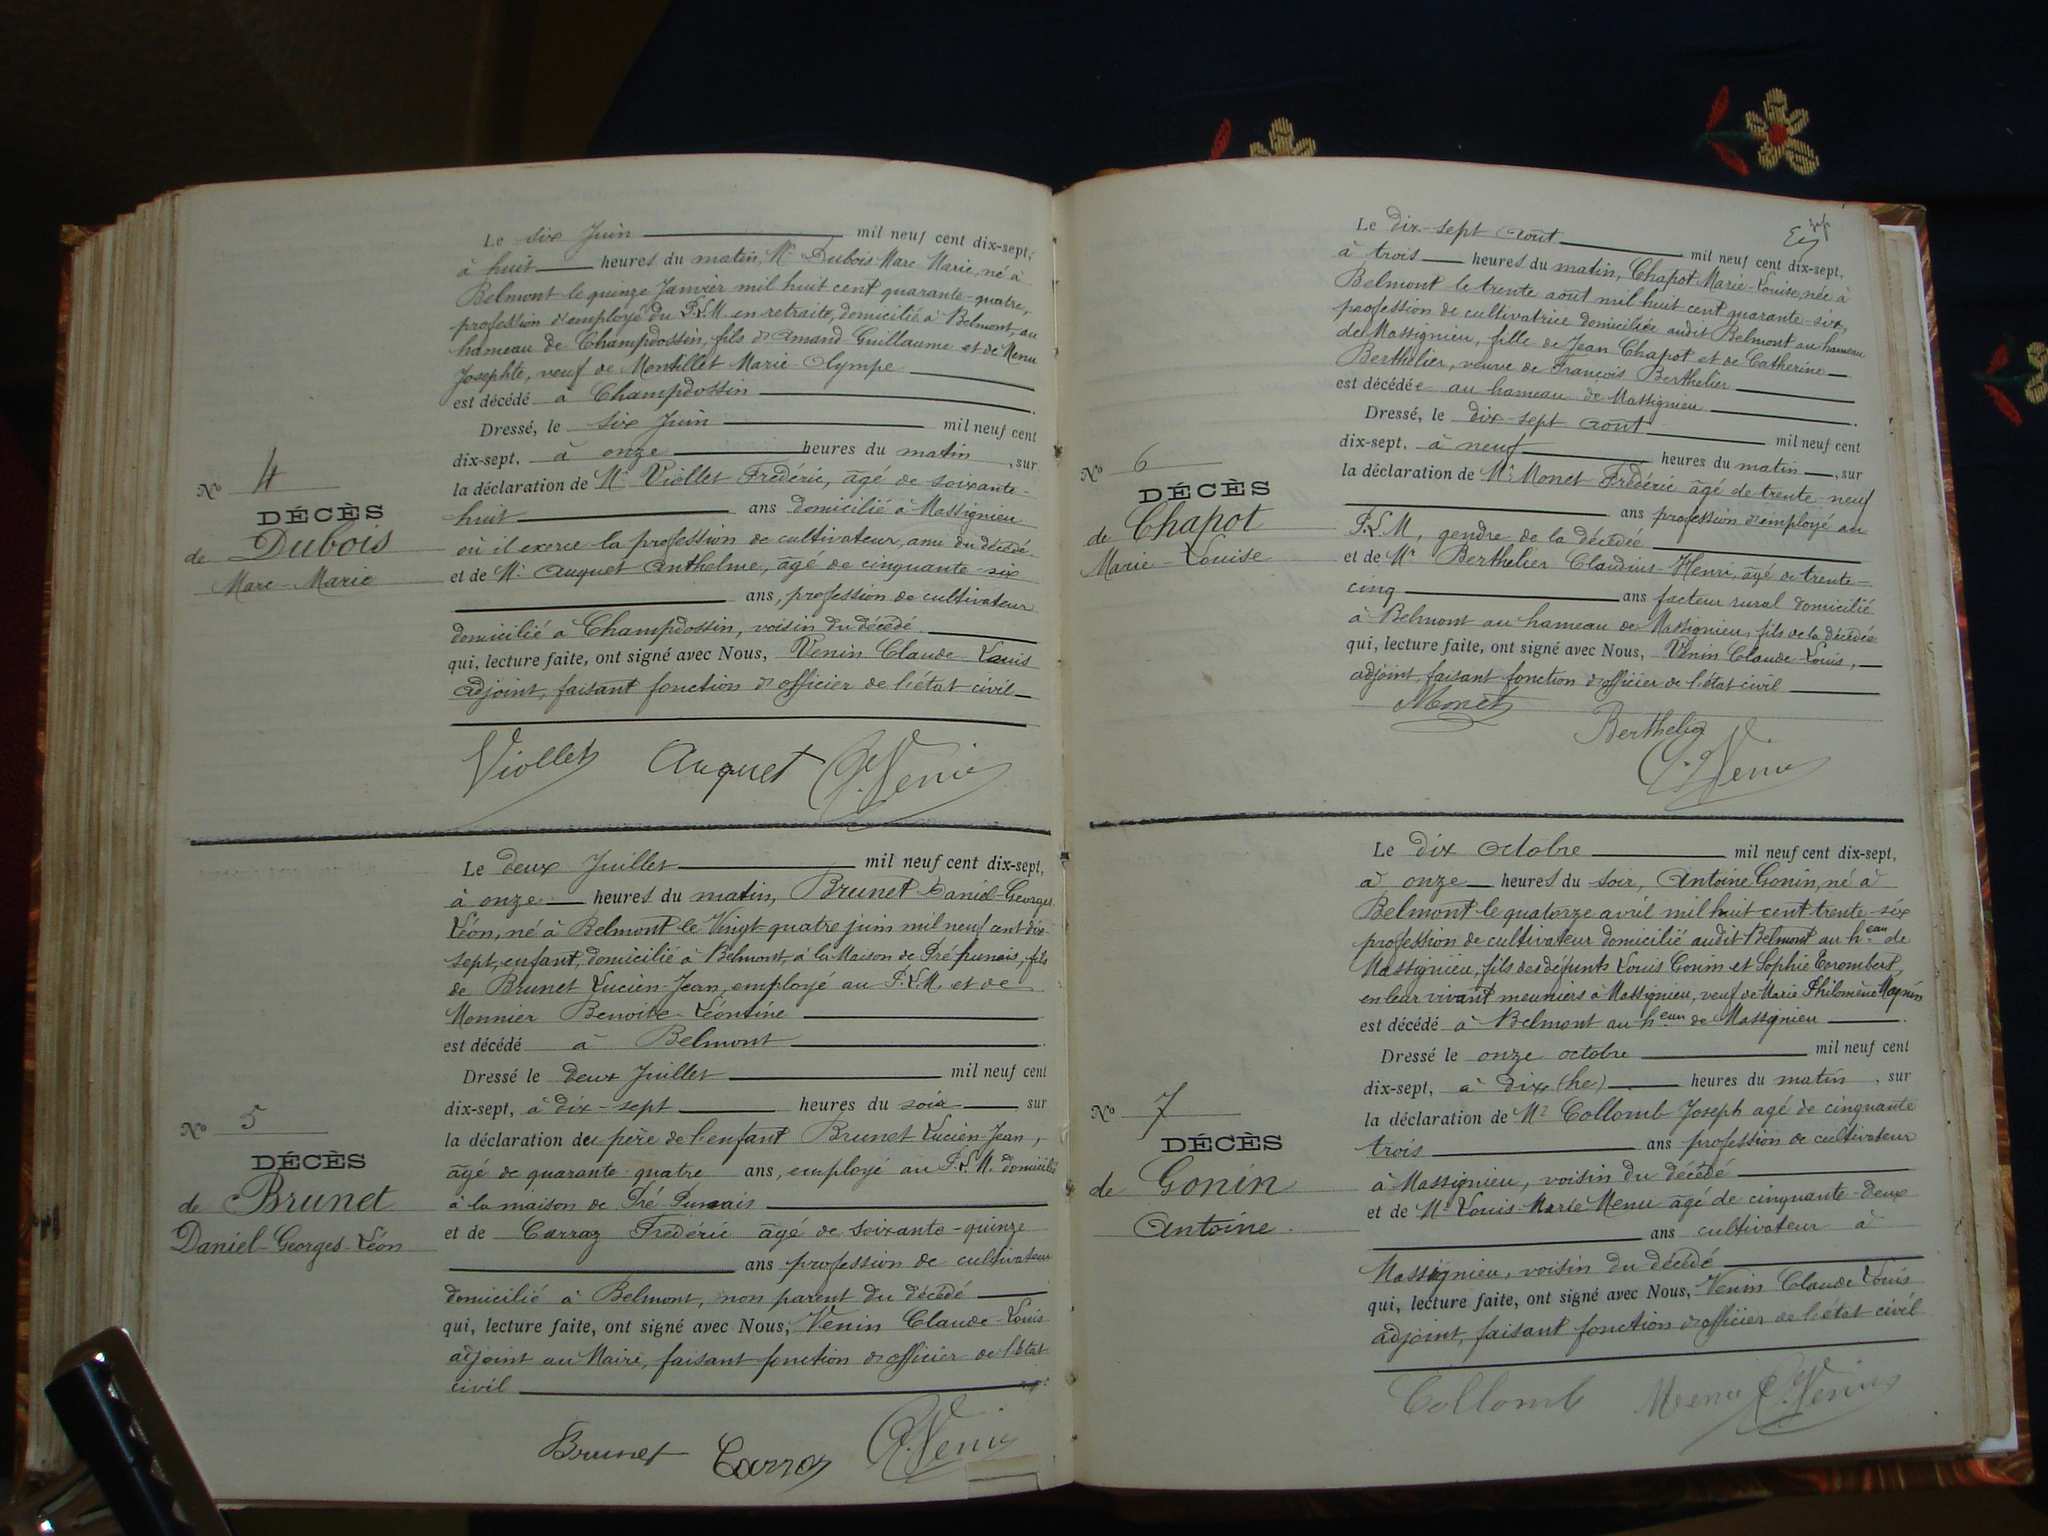 Le six Juin mil neuf cent dix-sept,
à huit heures du matin, Mr Dubois Marc Marie, né à
Belmont le quinze Janvier mil huit cent quarante-quatre,
profession d'employé du P.L.M en retraite, domicilié à Belmont, au
hameau de Champdossin, fils d'Amand Guillaume et de Menu
Josephte, veuf de Montillet Marie Olympe
est décédé à Champdossin
Dressé, le six Juin mil neuf cent
dix-sept, à onze heures du matin, sur
la déclaration de Mr Viollet Frédéric, âgé de soixante-
huit ans domicilié à Massignieu
où il exerce la profession de cultivateur, ami du décédé
et de Mr Auguet Anthelme, âgé de cinquante-six
ans, profession de cultivateur
domicilié à Champdossin, voisin du décédé
qui, lecture faite, ont signé avec Nous, Venin Claude Louis
adjoint, faisant fonction d'officier de l'état civil
Viollet Auguet C.L. Venin
No 4
DÉCÈS
de Dubois
Marc-Marie
Le deux Juillet mil neuf cent dix-sept,
à onze heures du matin, Brunet Daniel-Georges
Léon, né à Belmont le Vingt-quatre juin mil neuf cent dix-
sept, enfant, domicilié à Belmont, à la Maison de Pré punais, fils
de Brunet Lucien-Jean, employé au P.L.M. et de
Monnier Benoite-Léontine
est décédé à Belmont
Dressé le deux Juillet mil neuf cent
dix-sept, à dix-sept heures du soir sur
la déclaration deu père de l'enfant Brunet Lucien-Jean,
âgé de quarante-quatre ans, employé au P.L.M. domicilié
à la maison de Pré Punais
et de Carraz Frédéric âgé de soixante-quinze
ans profession de cultivateur
domicilié à Belmont, non parent du décédé
qui, lecture faite, ont signé avec Nous, Venin Claude-Louis
adjoint au Maire, faisant fonction d'officier de l'état
civil
Brunet Carraz C.L. Venin
No 5
DÉCÈS
de Brunet
Daniel-Georges-Léon
Le dix-sept août mil neuf cent dix-sept,
à trois heures du matin, Chapot Marie-Louise, née à
Belmont le trente août mil huit cent quarante-six,
profession de cultivatrice domiciliée audit Belmont au hameau
de Massignieu, fille de Jean Chapot et de Catherine
Berthelier, veuve de François Berthelier
est décédée au hameau de Massignieu
Dressé, le dix-sept août mil neuf cent
dix-sept, à neuf heures du matin, sur
la déclaration de Mr Monet Frédéric âgé de trente-neuf
ans profession d'employé au
P.L.M, gendre de la décédée
et de Mr Berthelier Claudius-Henri, âgé de trente-
cinq ans facteur rural domicilié
à Belmont au hameau de Massignieu, fils de la décédée
qui, lecture faite, ont signé avec Nous, Venin Claude-Louis,
adjoint, faisant fonction d'officier de l'état civil
Monet
Berthelier
C.L. Venin
No 6
DÉCÈS
de Chapot
Marie-Louise
Le dix octobre mil neuf cent dix-sept,
à onze heures du soir, Antoine Gonin, né à
Belmont le quatorze avril mil huit cent trente-six
profession de cultivateur domicilié audit Belmont au heau de
Massignieu, fils des défunts Louis Gonin et Sophie Corombert,
en leur vivant meuniers à Massignieu, veuf de Marie Philomène Magnin
est décédé à Belmont au heau de Massignieu
Dressé le onze octobre mil neuf cent
dix-sept, à dix (he) heures du matin, sur
la déclaration de Mr Collomb Joseph agé de cinquante
trois ans profession de cultivateur
à Massignieu, voisin du décédé
et de Mr Louis-Marie Menu âgé de cinquante-deux
ans cultivateur à
Massignieu, voisin du décédé
qui, lecture faite, ont signé avec Nous, Venin Claude Louis
adjoint, faisant fonction d'officier de l'état civil
Collomb Menu C.L. Venin
No 7
DÉCÈS
de Gonin
Antoine